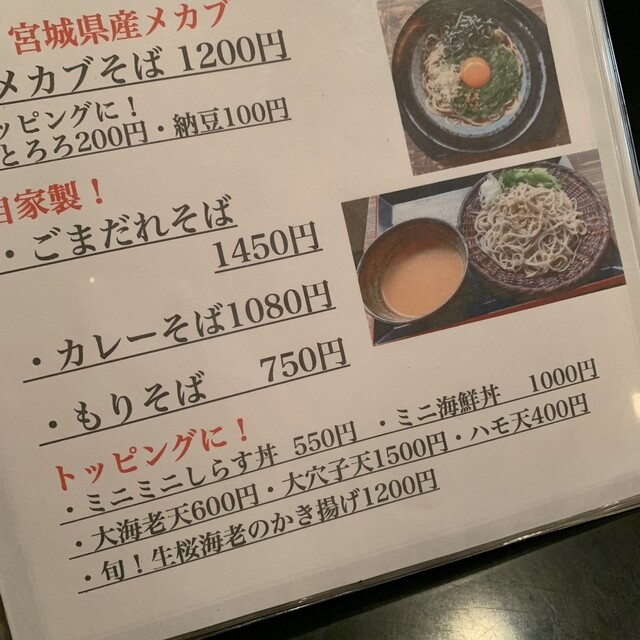 宮城県産メカブ
メカブそば 1200円
ッピングに！
とろろ200円・納豆100円
自家製！
・ごまだれそば
1450円
・カレーそば1080円
・もりそば 750円
トッピングに！
・ミニミニしらす丼 550円 ・ミニ海鮮丼 1000円
・大海老天600円・大穴子天1500円・ハモ天400円
・旬！生桜海老のかき揚げ1200円